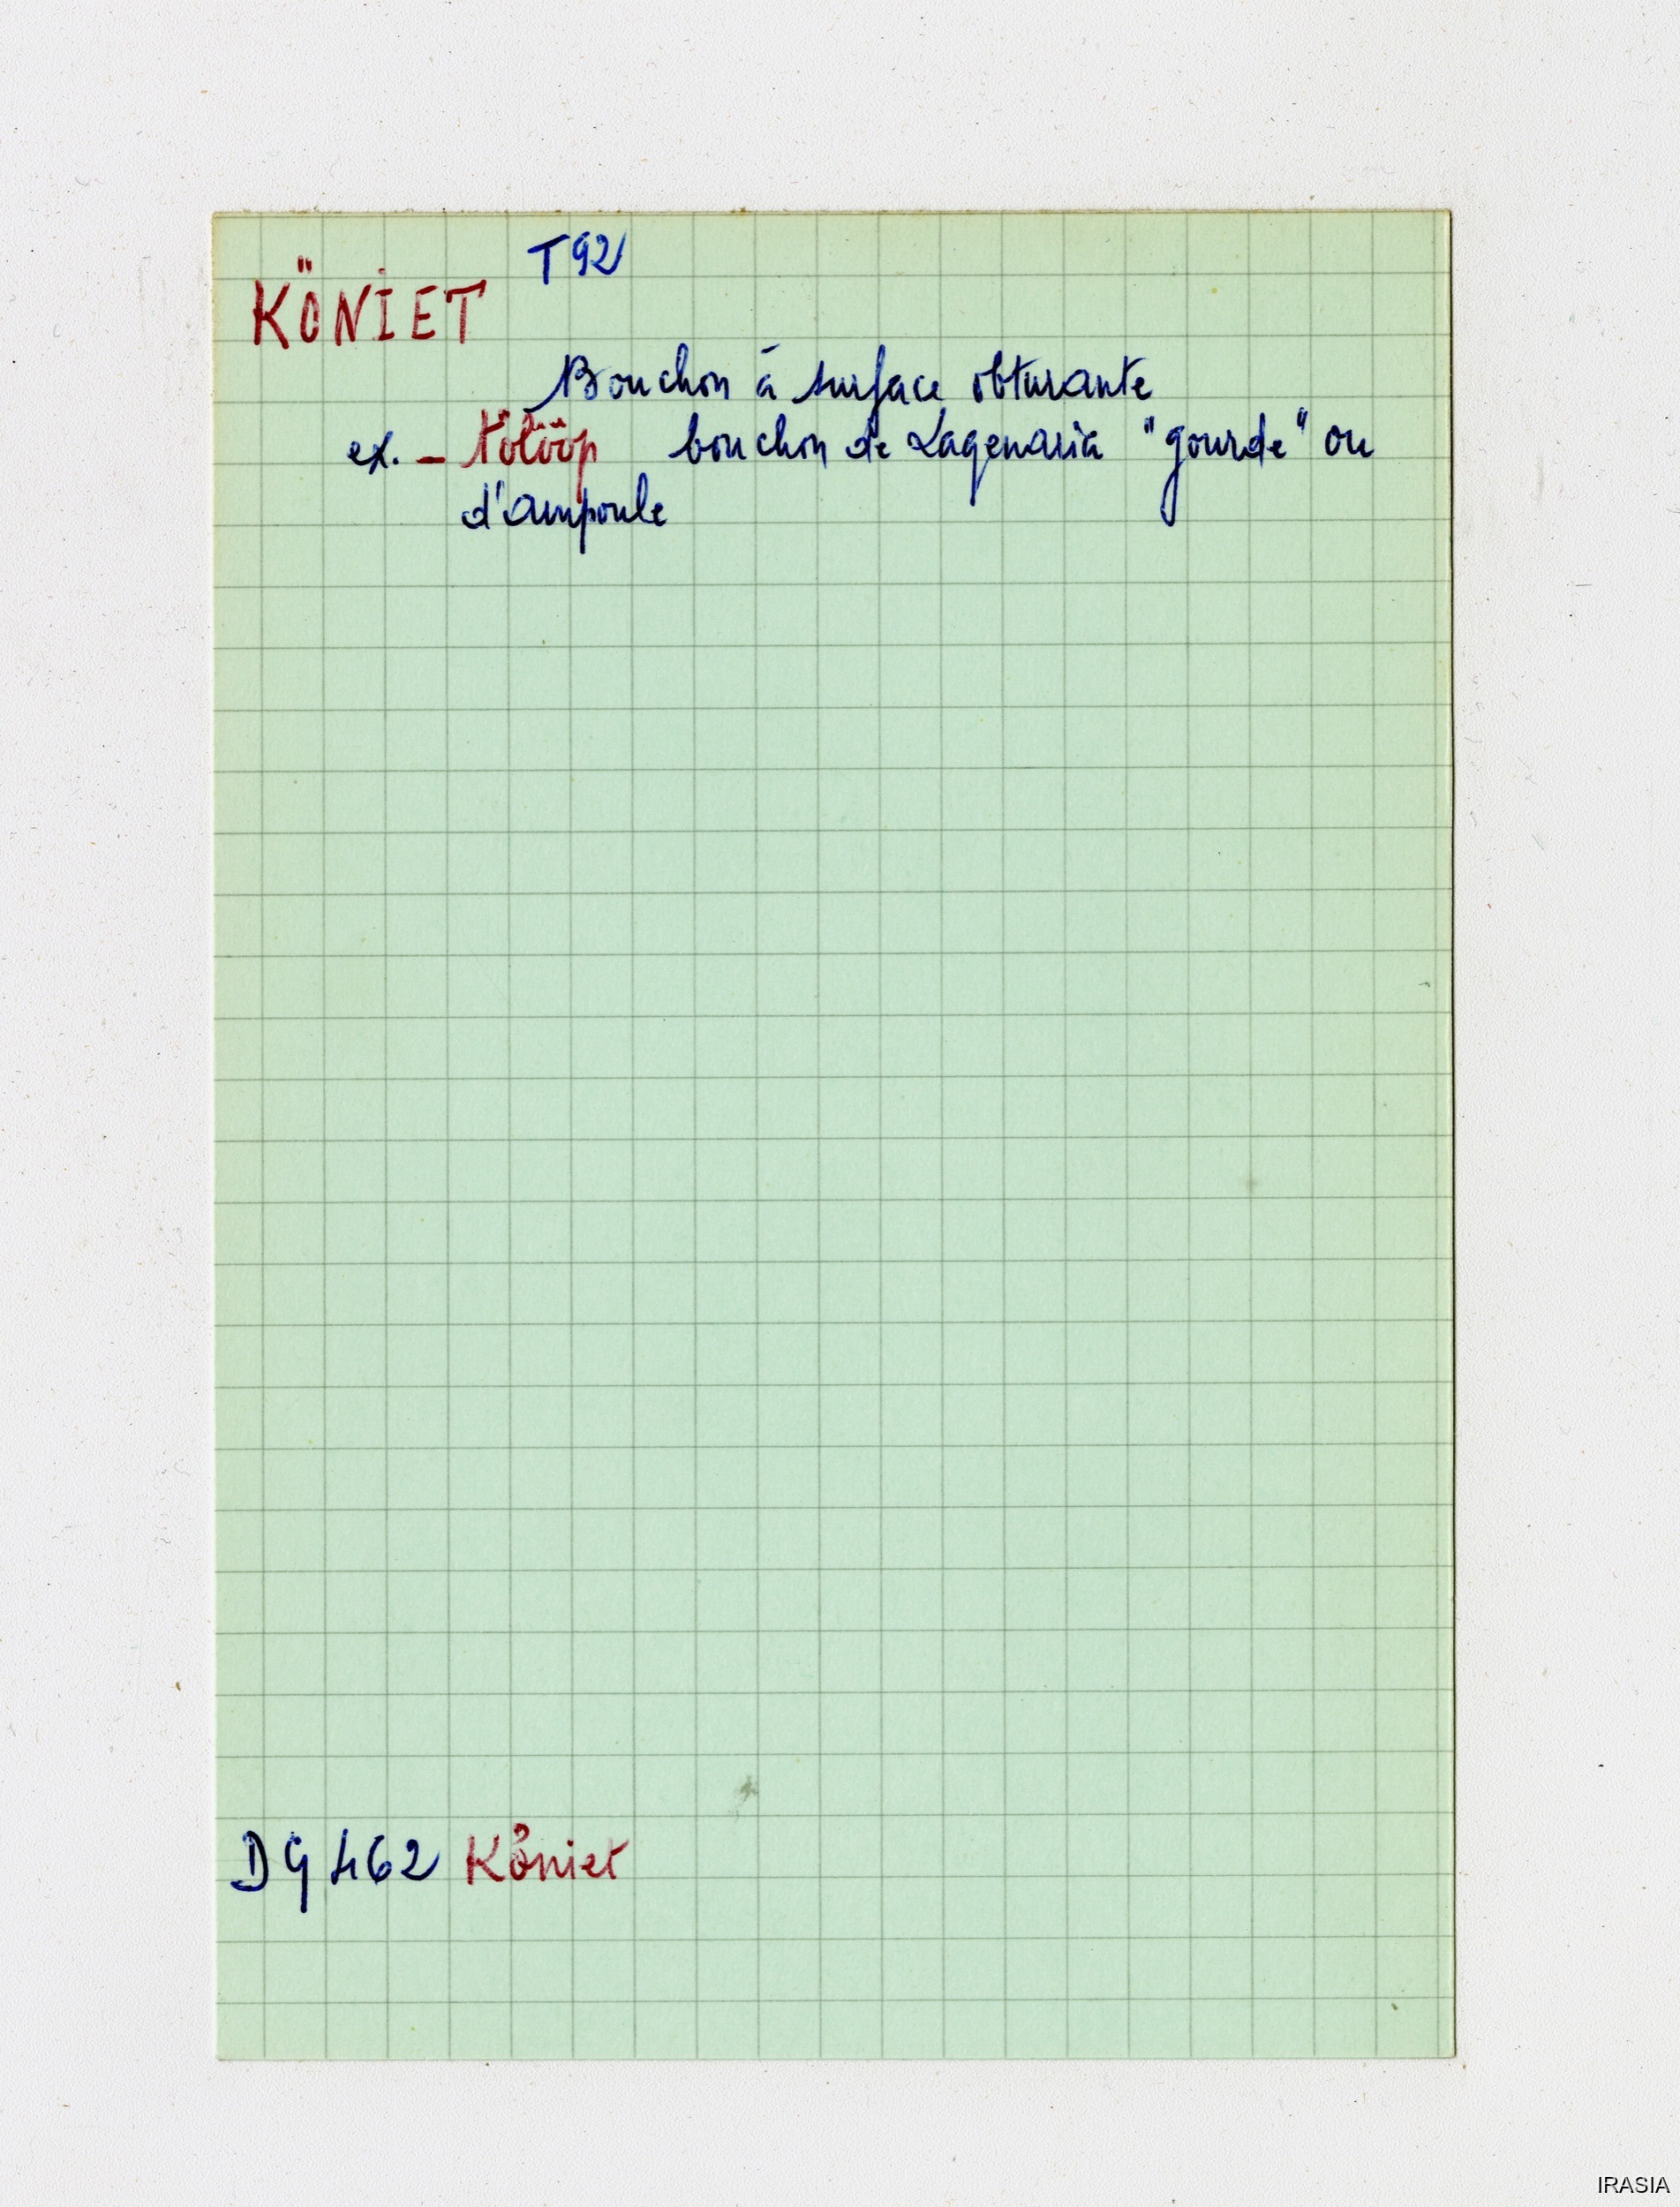 T92
KÖNIET
Bouchon à surface obturante
ex. – tölööp bouchon de Lagenaria "gourde" ou
d'ampoule
DG 462 Köniet
IRASIA